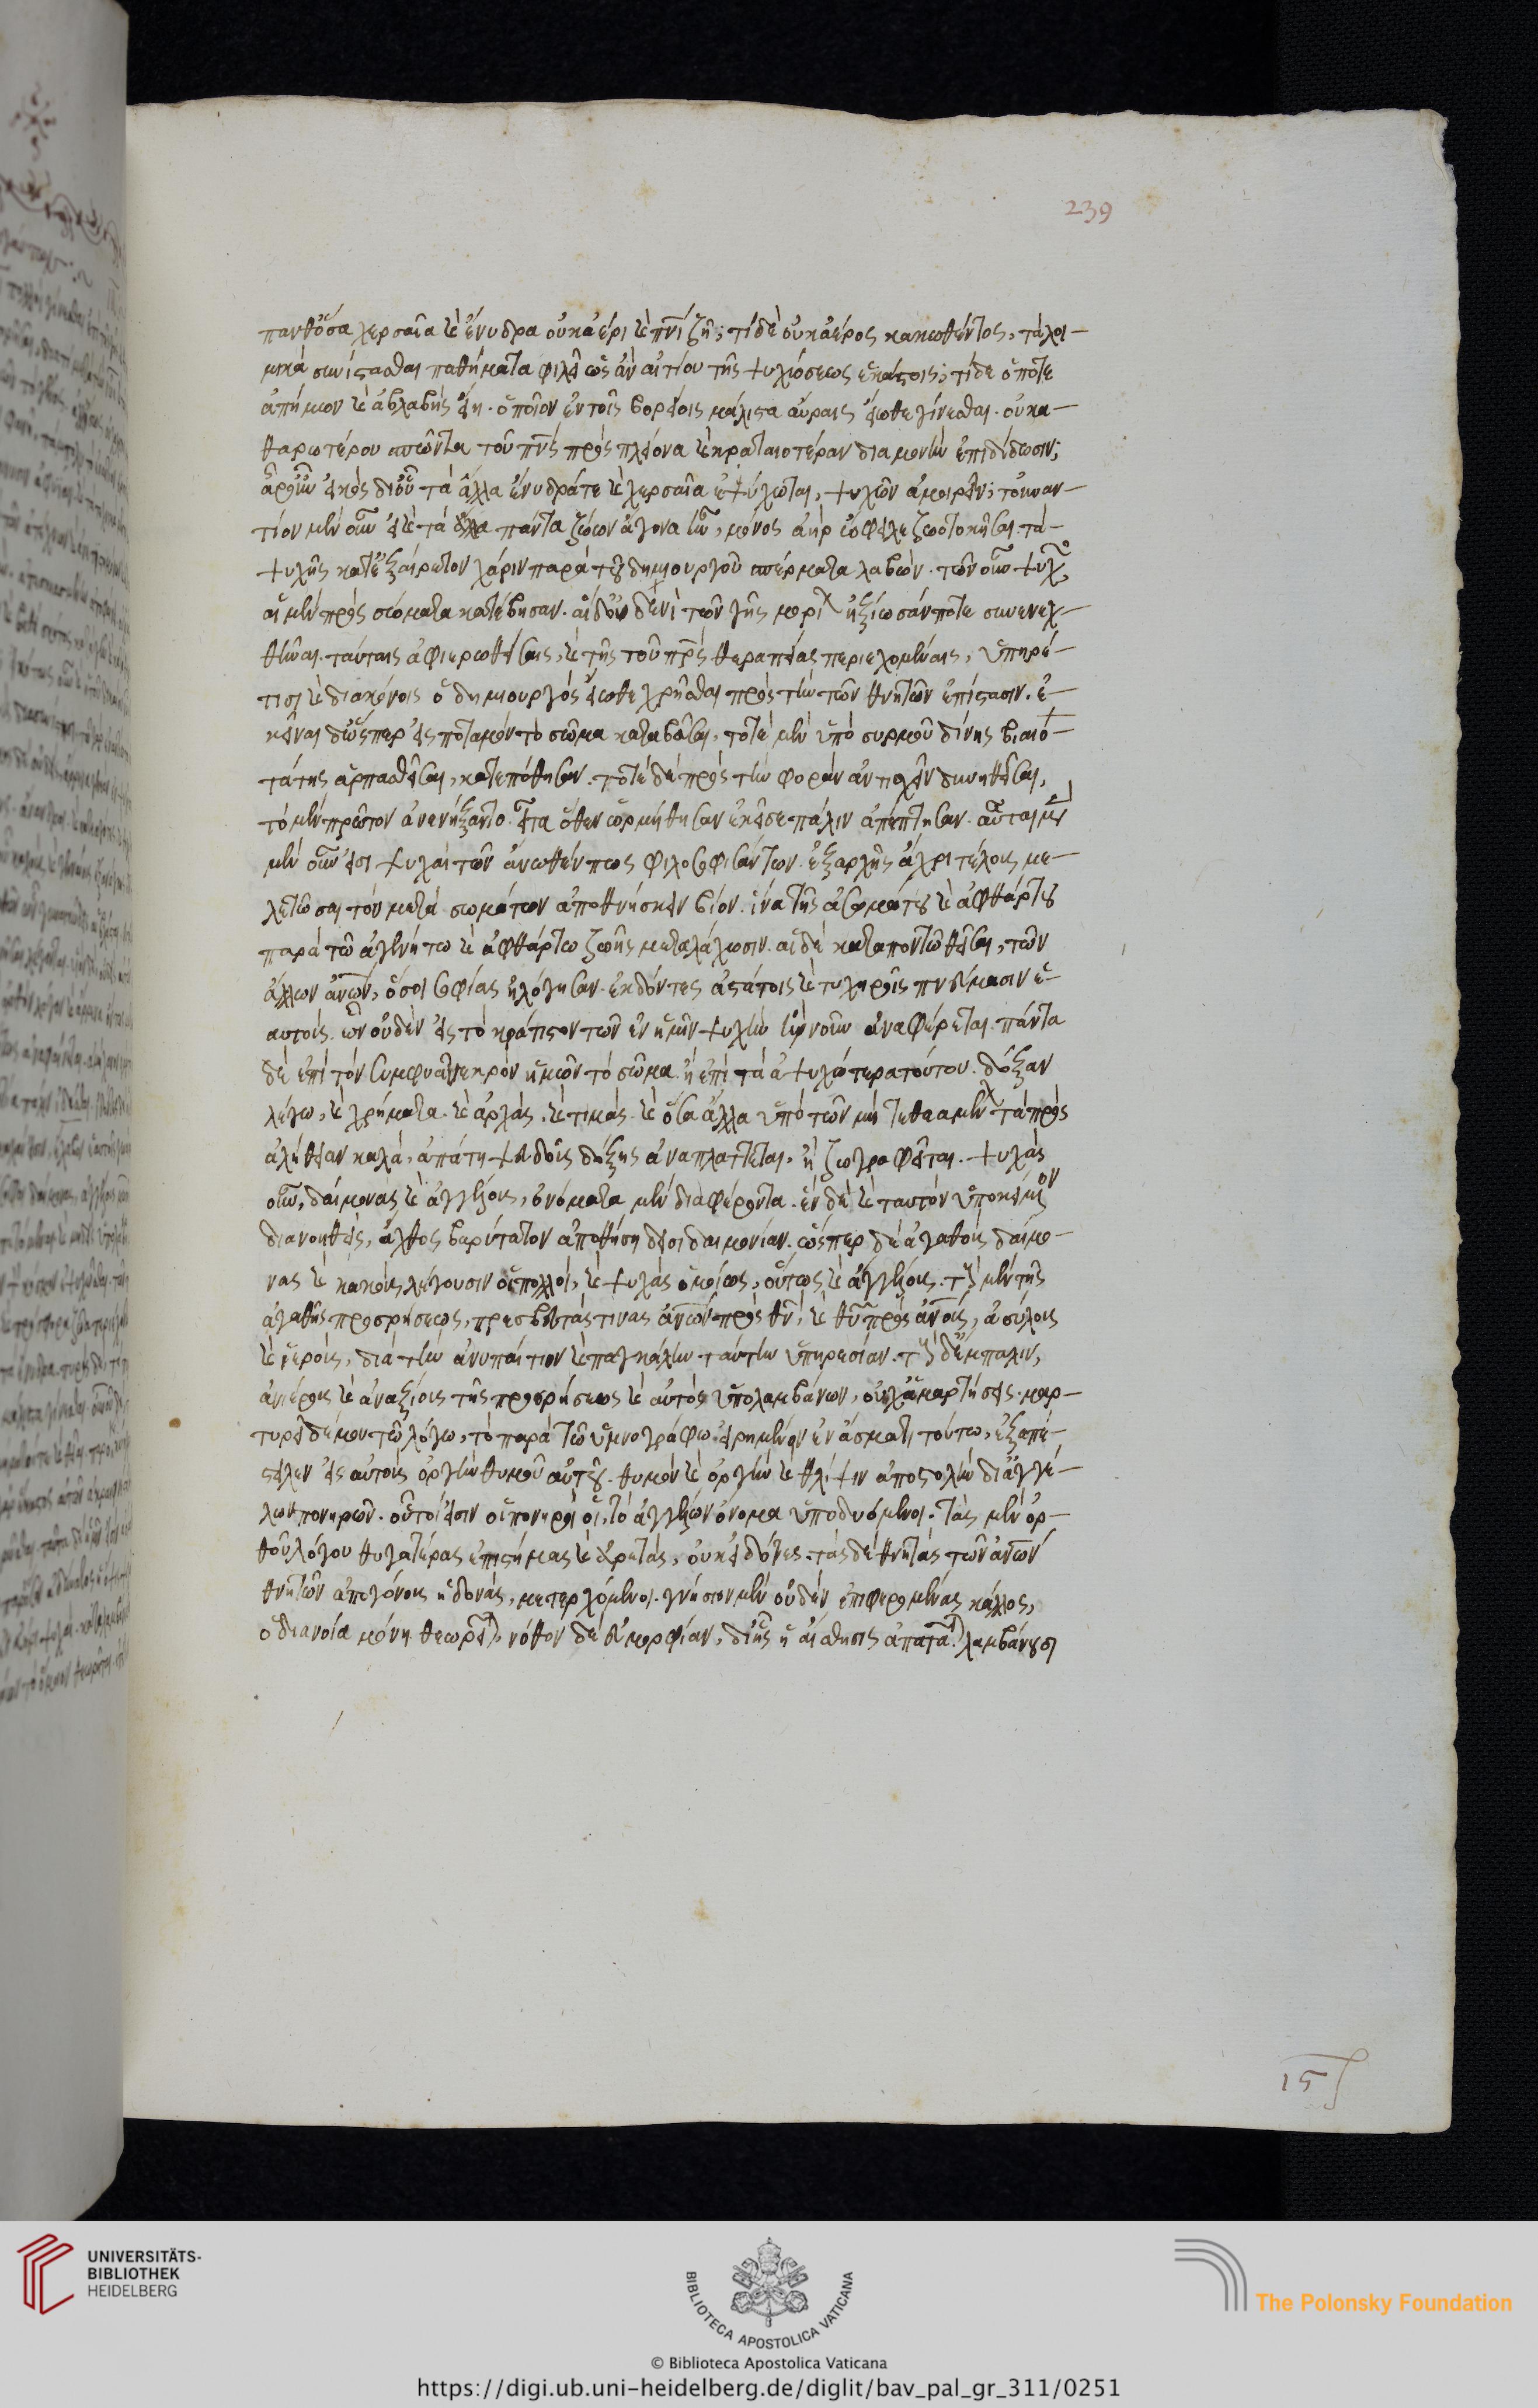 πανθ' ὅσα χερσαῖα καὶ ἔνυδρα οὐκ ἀέρι καὶ πν̅ι ζῆ; τί δὲ οὐκ ἀέρος κακωθέντος, τὰ λοι-
μικὰ συνίστασθαι παθήματα φιλεῖ ὡς ἂν αἰτίου τῆς ψυχώσεως ἑκάστοις; τί δε ὁπότε
ἀπήμων καὶ ἀβλαβὴς εἴη. ὁποῖον ἐν τοῖς βορείοις μάλιστα αὔραις εἴωθε γίνεσθαι. οὐ κα-
θαρωτέρου σπῶντα τοῦ πν̅ς πρὸς πλείονα καὶ κραταιοτέραν διαμονὴν ἐπιδίδωσιν;
ἆρ' οὖν εἰκὸς δι' οὗ τὰ ἄλλα ἔνυδρά τε καὶ χερσαῖα ἐψύχωται, ψυχῶν ἀμοιρεῖν; τοὐναν-
τίον μὲν οὖν εἰ καὶ τὰ ἄλλα πάντα ζώων ἄγονα ἦν, μόνος ἀὴρ ὤφειλε ζωοτοκῆσαι τὰ
ψυχῆς κατ' ἐξαίρετον χάριν παρὰ τοῦ δημιουργοῦ σπέρματα λαβών. τῶν οὖν ψυχ
αἱ μὲν πρὸς σώματα κατέβησαν. αἱ δ' οὐδενὶ τῶν γῆς μορι ἠξίωσάν ποτε συνενεχ-
θῆναι. ταύταις ἀφιερωθείσαις, καὶ τῆς τοῦ πρ̅ς θεραπείας περιεχομέναις, ὑπηρέ-
τισι καὶ διακόνοις ὁ δημιουργὸς εἴωθε χρῆσθαι πρὸς τὴν τῶν θνητῶν ἐπίστασιν. ἐ-
κεῖναι δ' ὥσπερ εἰς ποταμὸν τὸ σῶμα καταβᾶσαι, τοτὲ μὲν ὑπὸ συρμοῦ δίνης βιαιο-
τάτης ἁρπασθεῖσαι, κατεπόθησαν. τοτὲ δὲ πρὸς τὴν φορὰν ἀντισχεῖν δυνηθεῖσαι,
τὸ μὲν πρῶτον ἀνενήξαντο. εἶτα ὅθεν ὥρμηθησαν ἐκεῖσε πάλιν ἀπέπτησαν. αὗται μὲν
μὲν οὖν εἰσι ψυχαὶ τῶν ἄνωθέν πως φιλοσοφισάντων. ἐξ ἀρχῆς ἄχρι τέλους με-
λετῶσαι τὸν μετὰ σωμάτων ἀποθνήσκειν βίον. ἵνα τῆς ἀσωμάτου καὶ ἀφθάρτου
παρὰ τῶ ἀγενήτω καὶ ἀφθάρτω ζωῆς μεταλάχωσιν. αἱ δὲ καταποντωθεῖσαι, τῶν
ἄλλων ἀν̅ων, ὅσοι σοφίας ἠλόγησαν. ἐκδόντες ἀστάτοις καὶ τυχηροῖς πνεύμασιν ἑ-
αυτοὺς. ὧν οὐδὲν εἰς τὸ κράτιστον τῶν ἐν ἡμῖν ψυχὴν ἢ νοῦν ἀναφέρεται. πάντα
δὲ ἐπὶ τὸν συμφυᾶ νεκρὸν ἡμῶν τὸ σῶμα. ἢ ἐπὶ τὰ ἀψυχότερα τούτου. δόξαν
λέγω, καὶ χρήματα. καὶ ἀρχὰς. καὶ τιμὰς. καὶ ὅσα ἄλλα ὑπὸ τῶν μὴ τεθεαμεν τὰ πρὸς
ἀλήθειαν καλά, ἀπάτη ψευδοῦς δόξης ἀναπλάττεται, ἢ ζωγραφεῖται. ψυχὰς
οὖν, δαίμονας καὶ ἀγγέλους, ὀνόματα μὲν διαφέροντα. ἓν δὲ καὶ ταυτὸν ὑποκείμενον
διανοηθεὶς, ἄχθος βαρύτατον ἀποθήση δεισιδαιμονίαν. ὥσπερ δὲ ἀγαθοὺς δαίμο-
νας καὶ κακοὺς λέγουσιν οἱ πολλοί, καὶ ψυχὰς ὁμοίως, οὕτως καὶ ἀγγέλους. τοὺς μὲν τῆς
ἀγαθῆς προσρήσεως, πρεσβευτάς τινας ἀν̅ων πρὸς θν̅, καὶ θυ̅ πρὸς ἀν̅ους, ἀσύλους
καὶ ἱεροὺς, διὰ τὴν ἀνυπαίτιον καὶ παγκάλην ταύτην ὑπηρεσίαν. τοὺς δ' ἔμπαλιν,
ἀνιέρους καὶ ἀναξίους τῆς προσρήσεως καὶ αὐτὸς ὑπολαμβάνων, οὐχ ἁμαρτήσεις. μαρ-
τυρεῖ δέ μου τῶ λόγω, τὸ παρὰ τῶ ὑμνογράφω εἰρημένον ἐν ἄσματι τούτω, ἐξαπέ-
στειλεν εἰς αὐτοὺς ὀργὴν θυμοῦ αὐτοῦ. θυμὸν καὶ ὀργὴν καὶ θλίψιν ἀποστολὴν δι' ἀγγέ-
λων πονηρῶν. οὗτοί εἰσιν οἱ πονηροὶ οἱ τὸ ἀγγέλων ὄνομα ὑποδυόμενοι. τὰς μὲν ὀρ-
θοῦ λόγου θυγατέρας ἐπιστήμας καὶ ἀρετάς, οὐκ εἰδότες. τὰς δὲ θνητὰς τῶν ἀν̅ων
θνητῶν ἀπογόνους ἡδονάς, μετερχόμενοι. γνήσιον μὲν οὐδὲν ἐπιφερομένας κάλλος,
ὁ διανοία μόνη θεωρεῖται, νόθον δὲ εὐμορφίαν, δι' ἧς ἡ αἴσθησις ἀπατᾶται. λαμβάνουσι
239
15
UNIVERSITÄTS-
BIBLIOTHEK
HEIDELBERG
BIBLIOTECA APOSTOLICA VATICANA
The Polonsky Foundation
© Biblioteca Apostolica Vaticana
https://digi.ub.uni-heidelberg.de/diglit/bav_pal_gr_311/0251